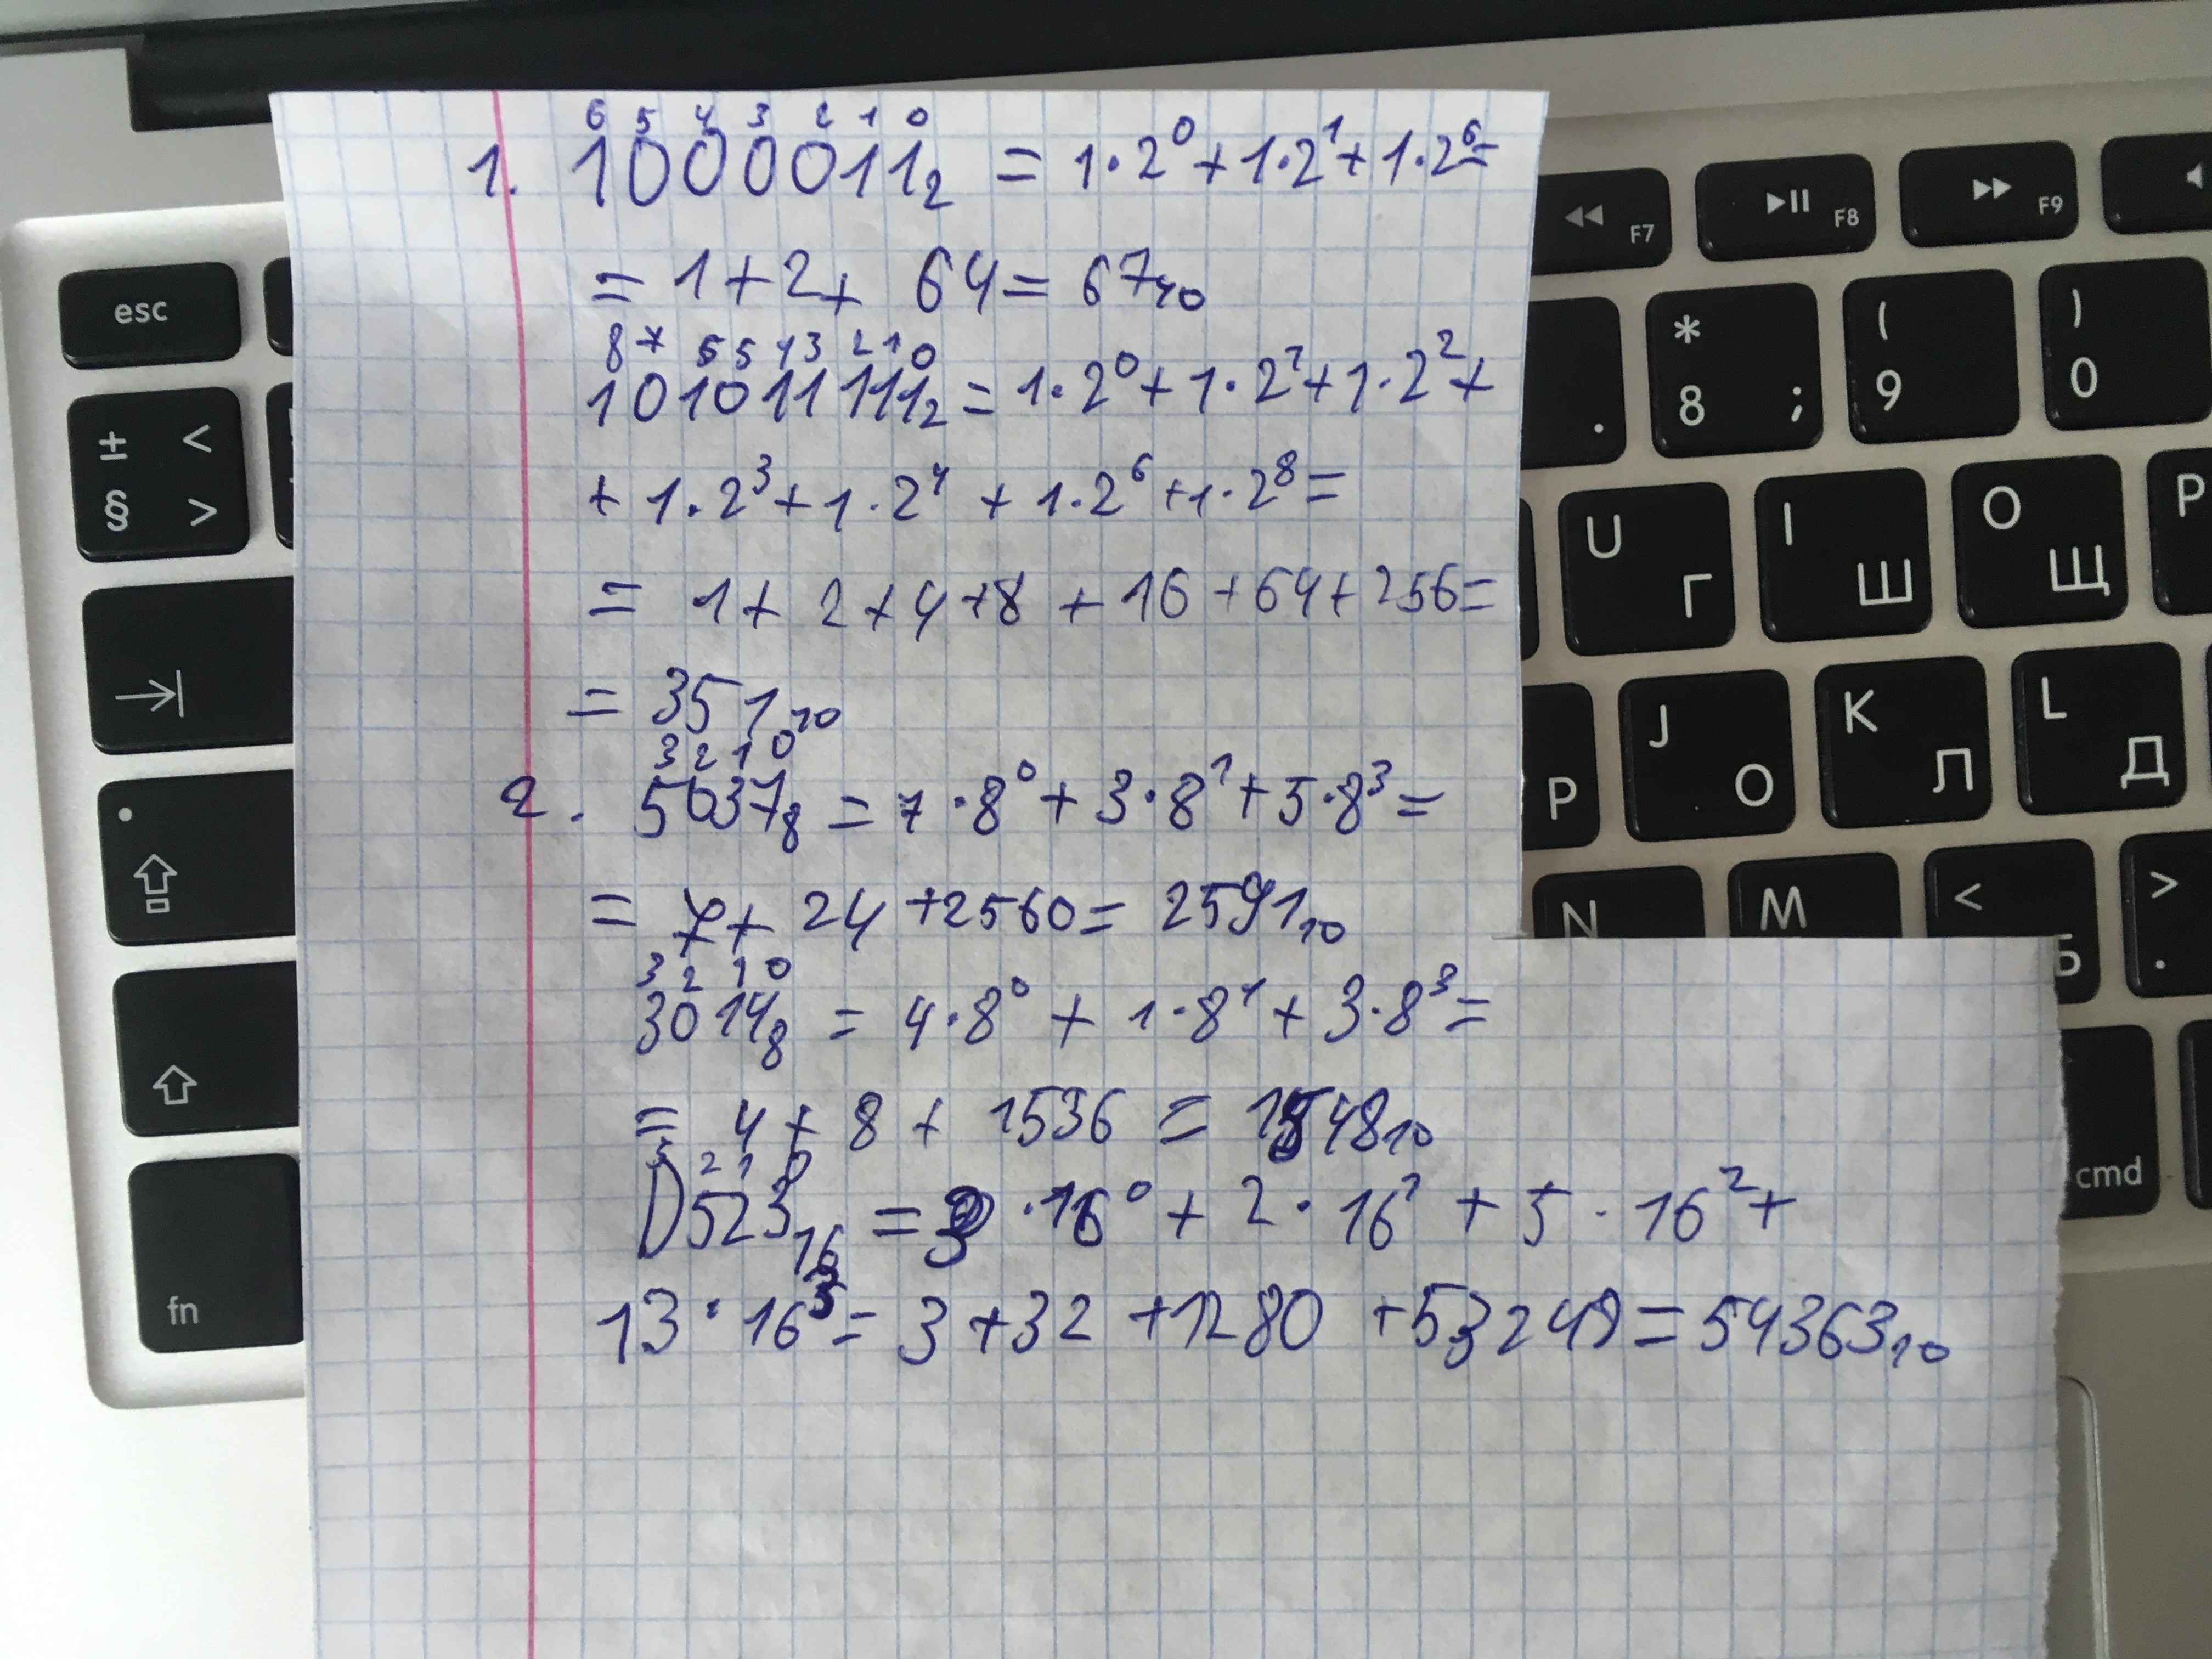 6 5 4 3 2 1 0
1. 1000011₂ = 1·2⁰ + 1·2¹ + 1·2⁶ =
= 1 + 2 + 64 = 67₁₀
8 7 6 5 4 3 2 1 0
101011111₂ = 1·2⁰ + 1·2¹ + 1·2² +
+ 1·2³ + 1·2⁴ + 1·2⁶ + 1·2⁸ =
= 1 + 2 + 4 + 8 + 16 + 64 + 256 =
= 351₁₀
3 2 1 0
2. 5037₈ = 7·8⁰ + 3·8¹ + 5·8³ =
= 7 + 24 + 2560 = 2591₁₀
3 2 1 0
3014₈ = 4·8⁰ + 1·8¹ + 3·8³ =
= 4 + 8 + 1536 = 1548₁₀
3 2 1 0
D523₁₆ = 3·16⁰ + 2·16¹ + 5·16² +
13·16³ = 3 + 32 + 1280 + 53249 = 54363₁₀
esc
± <
§ >
fn
◀◀ F7
▶II F8
▶▶ F9
.
* 8 ;
( 9
) 0
U Г
I Ш
O Щ
P
P
J О
K Л
L Д
N
M
< Б
> .
cmd